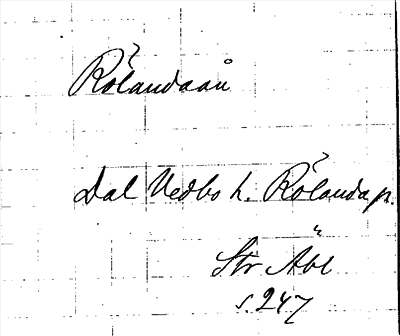 Rölandaån
Dal Vedbo h. Rölanda p.
Str Åbl
s. 247